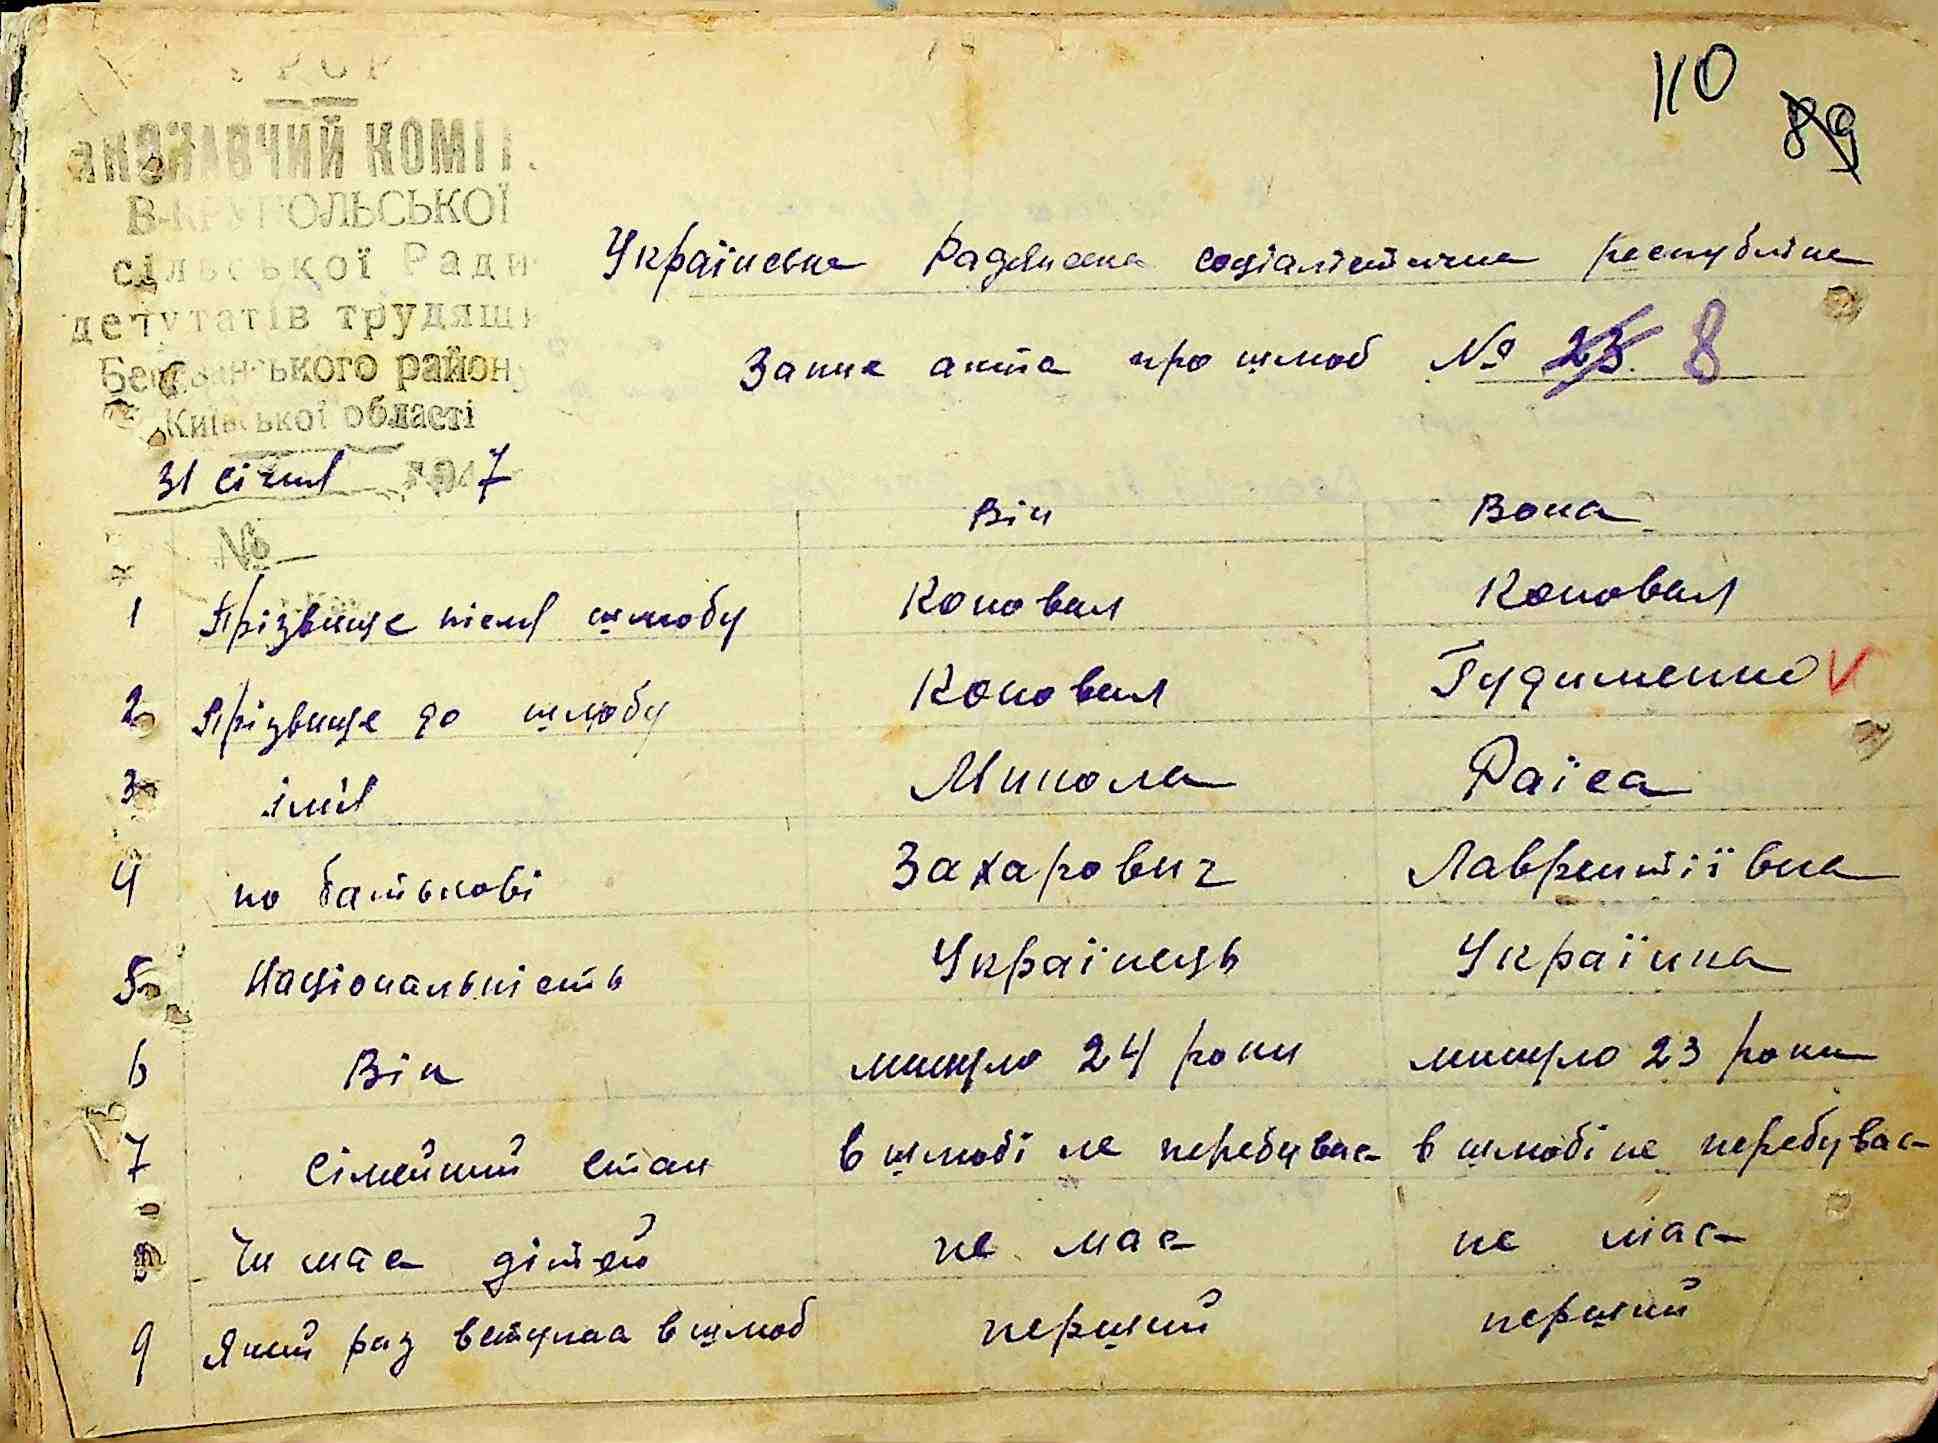 110
89
УРСР
ВИКОНАВЧИЙ КОМІТ.
В-КРУПОЛЬСЬКОЇ
сільської Ради
депутатів трудящи
Березанського району
Київської області
31 січня 1947
№
Українська Радянська соціалістична республіка
Запис акта про шлюб № 23. 8
Він Вона
1 Прізвище після шлюбу Коновал Коновал
2 Прізвище до шлюбу Коновал Гудименко V
3 імя Микола Раїса
4 по батькові Захарович Лаврентіївна
5 Національність Українець Українка
6 Вік минуло 24 роки минуло 23 роки
7 Сімейний стан в шлюбі не перебував в шлюбі не перебувае
8 Чи має дітей не має не має
9 Який раз вступаа в шлюб перший перший